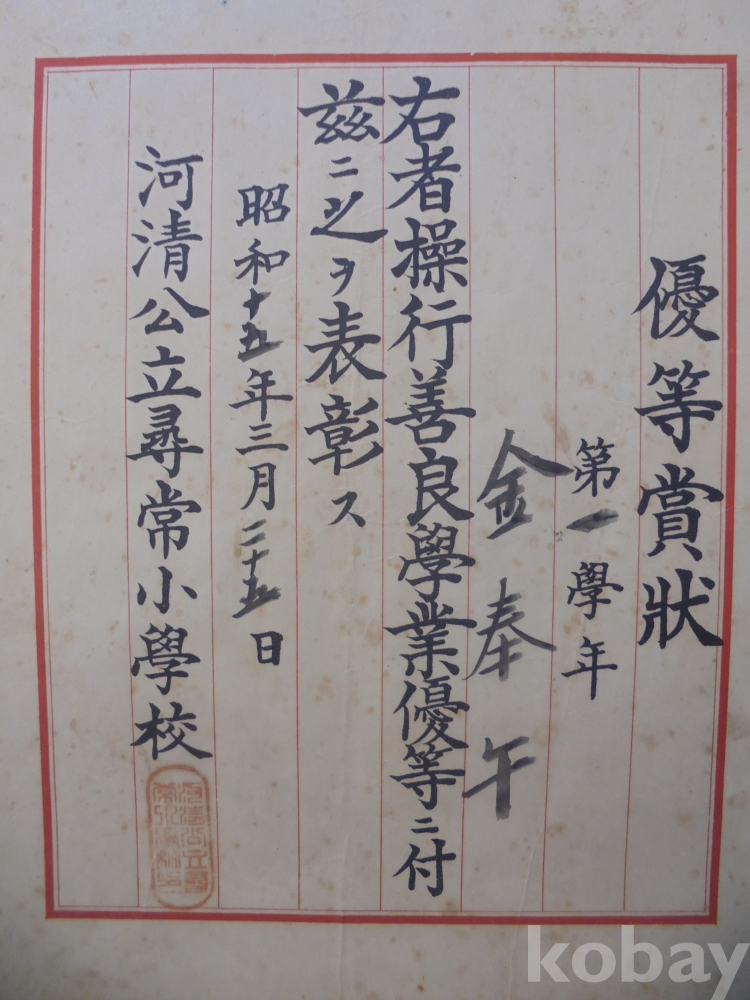 優等賞狀
第一學年
金奉午
右者操行善良學業優等ニ付
玆ニ之ヲ表彰ス
昭和十五年三月二十五日
河清公立尋常小學校
kobay